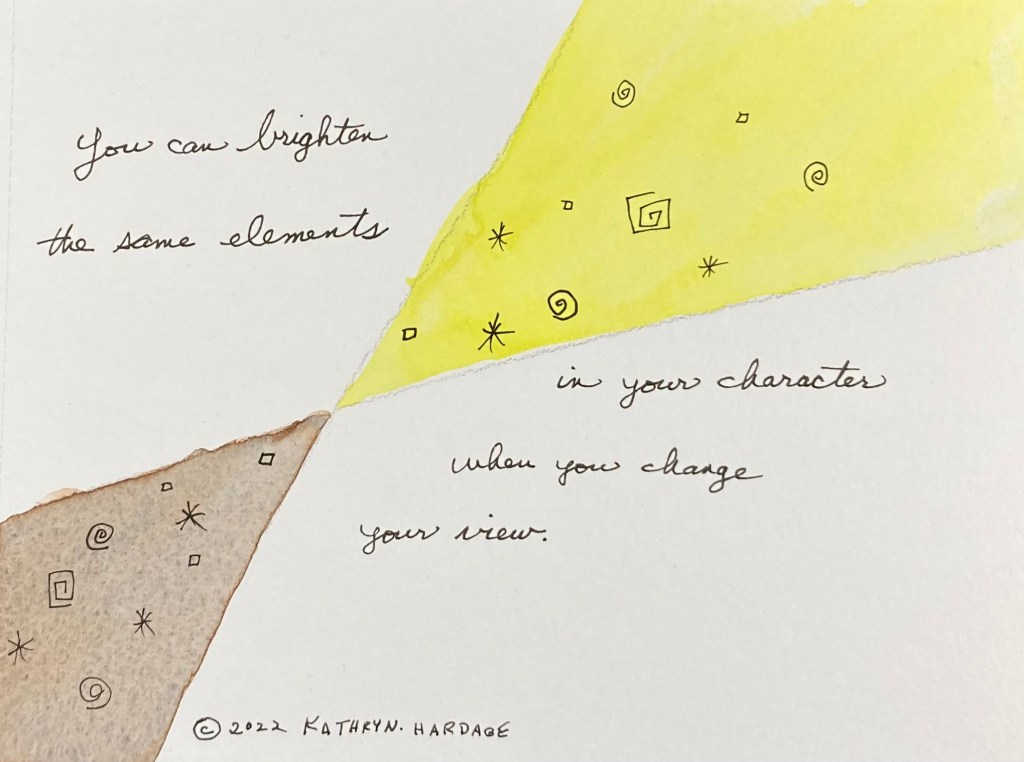 You can brighten
the same elements
in your character
when you change
your view.
© 2022 KATHRYN. HARDAGE